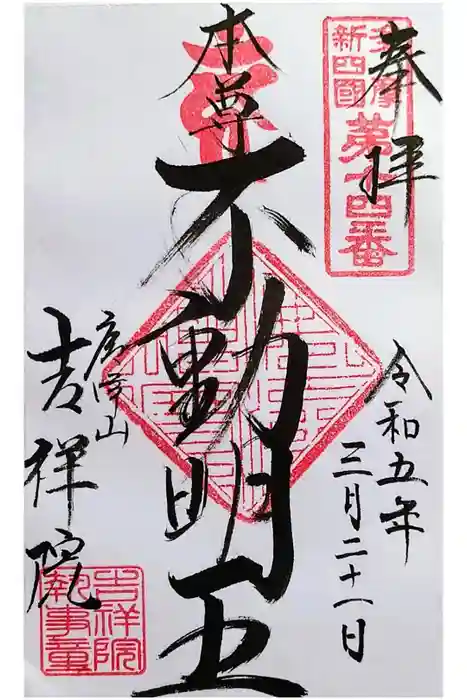 奉拝
多摩
新四國
第十四番
令和五年
三月二十一日
本尊
不動明王
山
吉祥院
吉祥院
執事章